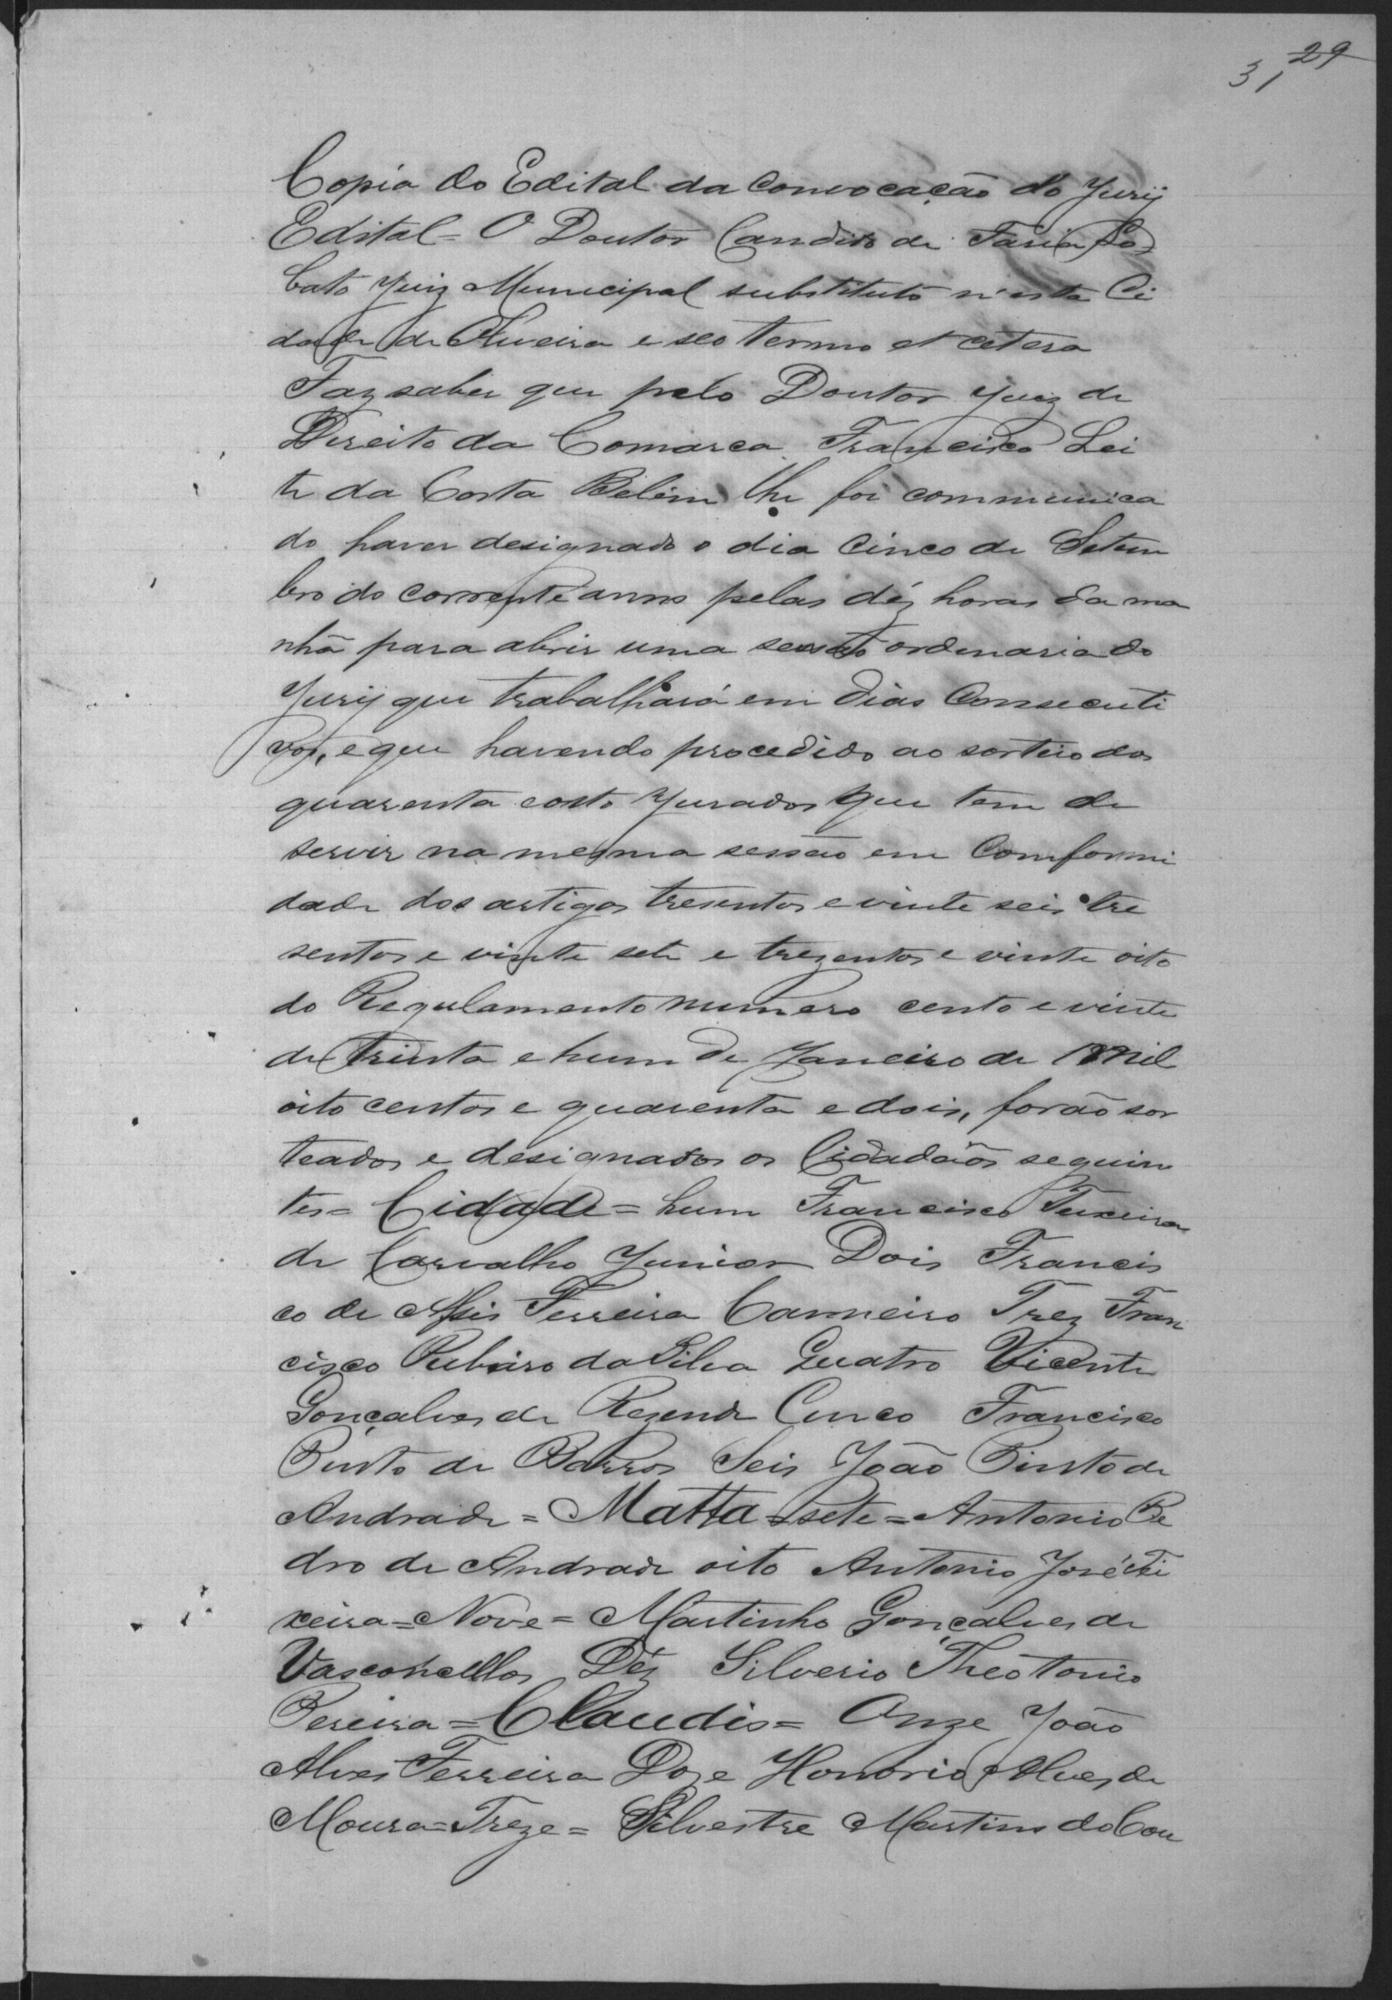 29
31
Copia do Edital da Convocação do Jury
Edital = O Doutor Candido de Faria Lo=
bato Juiz Municipal substituto n'esta Ci
dade de Oliveira e seo termo et cetera
Faz saber que pelo Doutor Juiz de
Direito da Comarca Francisco Lei
te da Costa Belém lhe foi communica
do haver designado o dia Cinco de Setem
bro do corrente anno pelas déz horas da ma
nhã para abrir uma sessão ordenaria do
Jury que trabalhará em dias Consecuti
vos, e que havendo procedido ao sorteio dos
quarenta e oito Jurados que tem de
servir na mesma sessão em Comformi
dade dos artigos tresentos e vinte seis tre
sentos e vinte sete e trezentos e vinte oito
do Regulamento numero cento e vinte
de trinta e hum de Janeiro de Mil
oito centos e quarenta e dois, forão sor
teados e designados os Cidadãos seguin
tes = Cidade = hum Francisco Teixeira
de Carvalho Junior Dois Francis
co de Assis Ferreira Carneiro Trez Fran
cisco Ribeiro da Silva Quatro Vicente
Gonçalves de Rezende Cinco Francisco
Pinto de Barros Seis João Pinto de
Andrade = Matta = sete = Antonio Pe
dro de Andrade oito Antonio José Tei
xeira = Nove = Martinho Gonçalves de
Vasconcellos Déz Silverio Theotonio
Pereira = Claudio = Onze João
Alves Ferreira Doze Honorio Alves de
Moura = Treze = Silvestre Martins do Cou